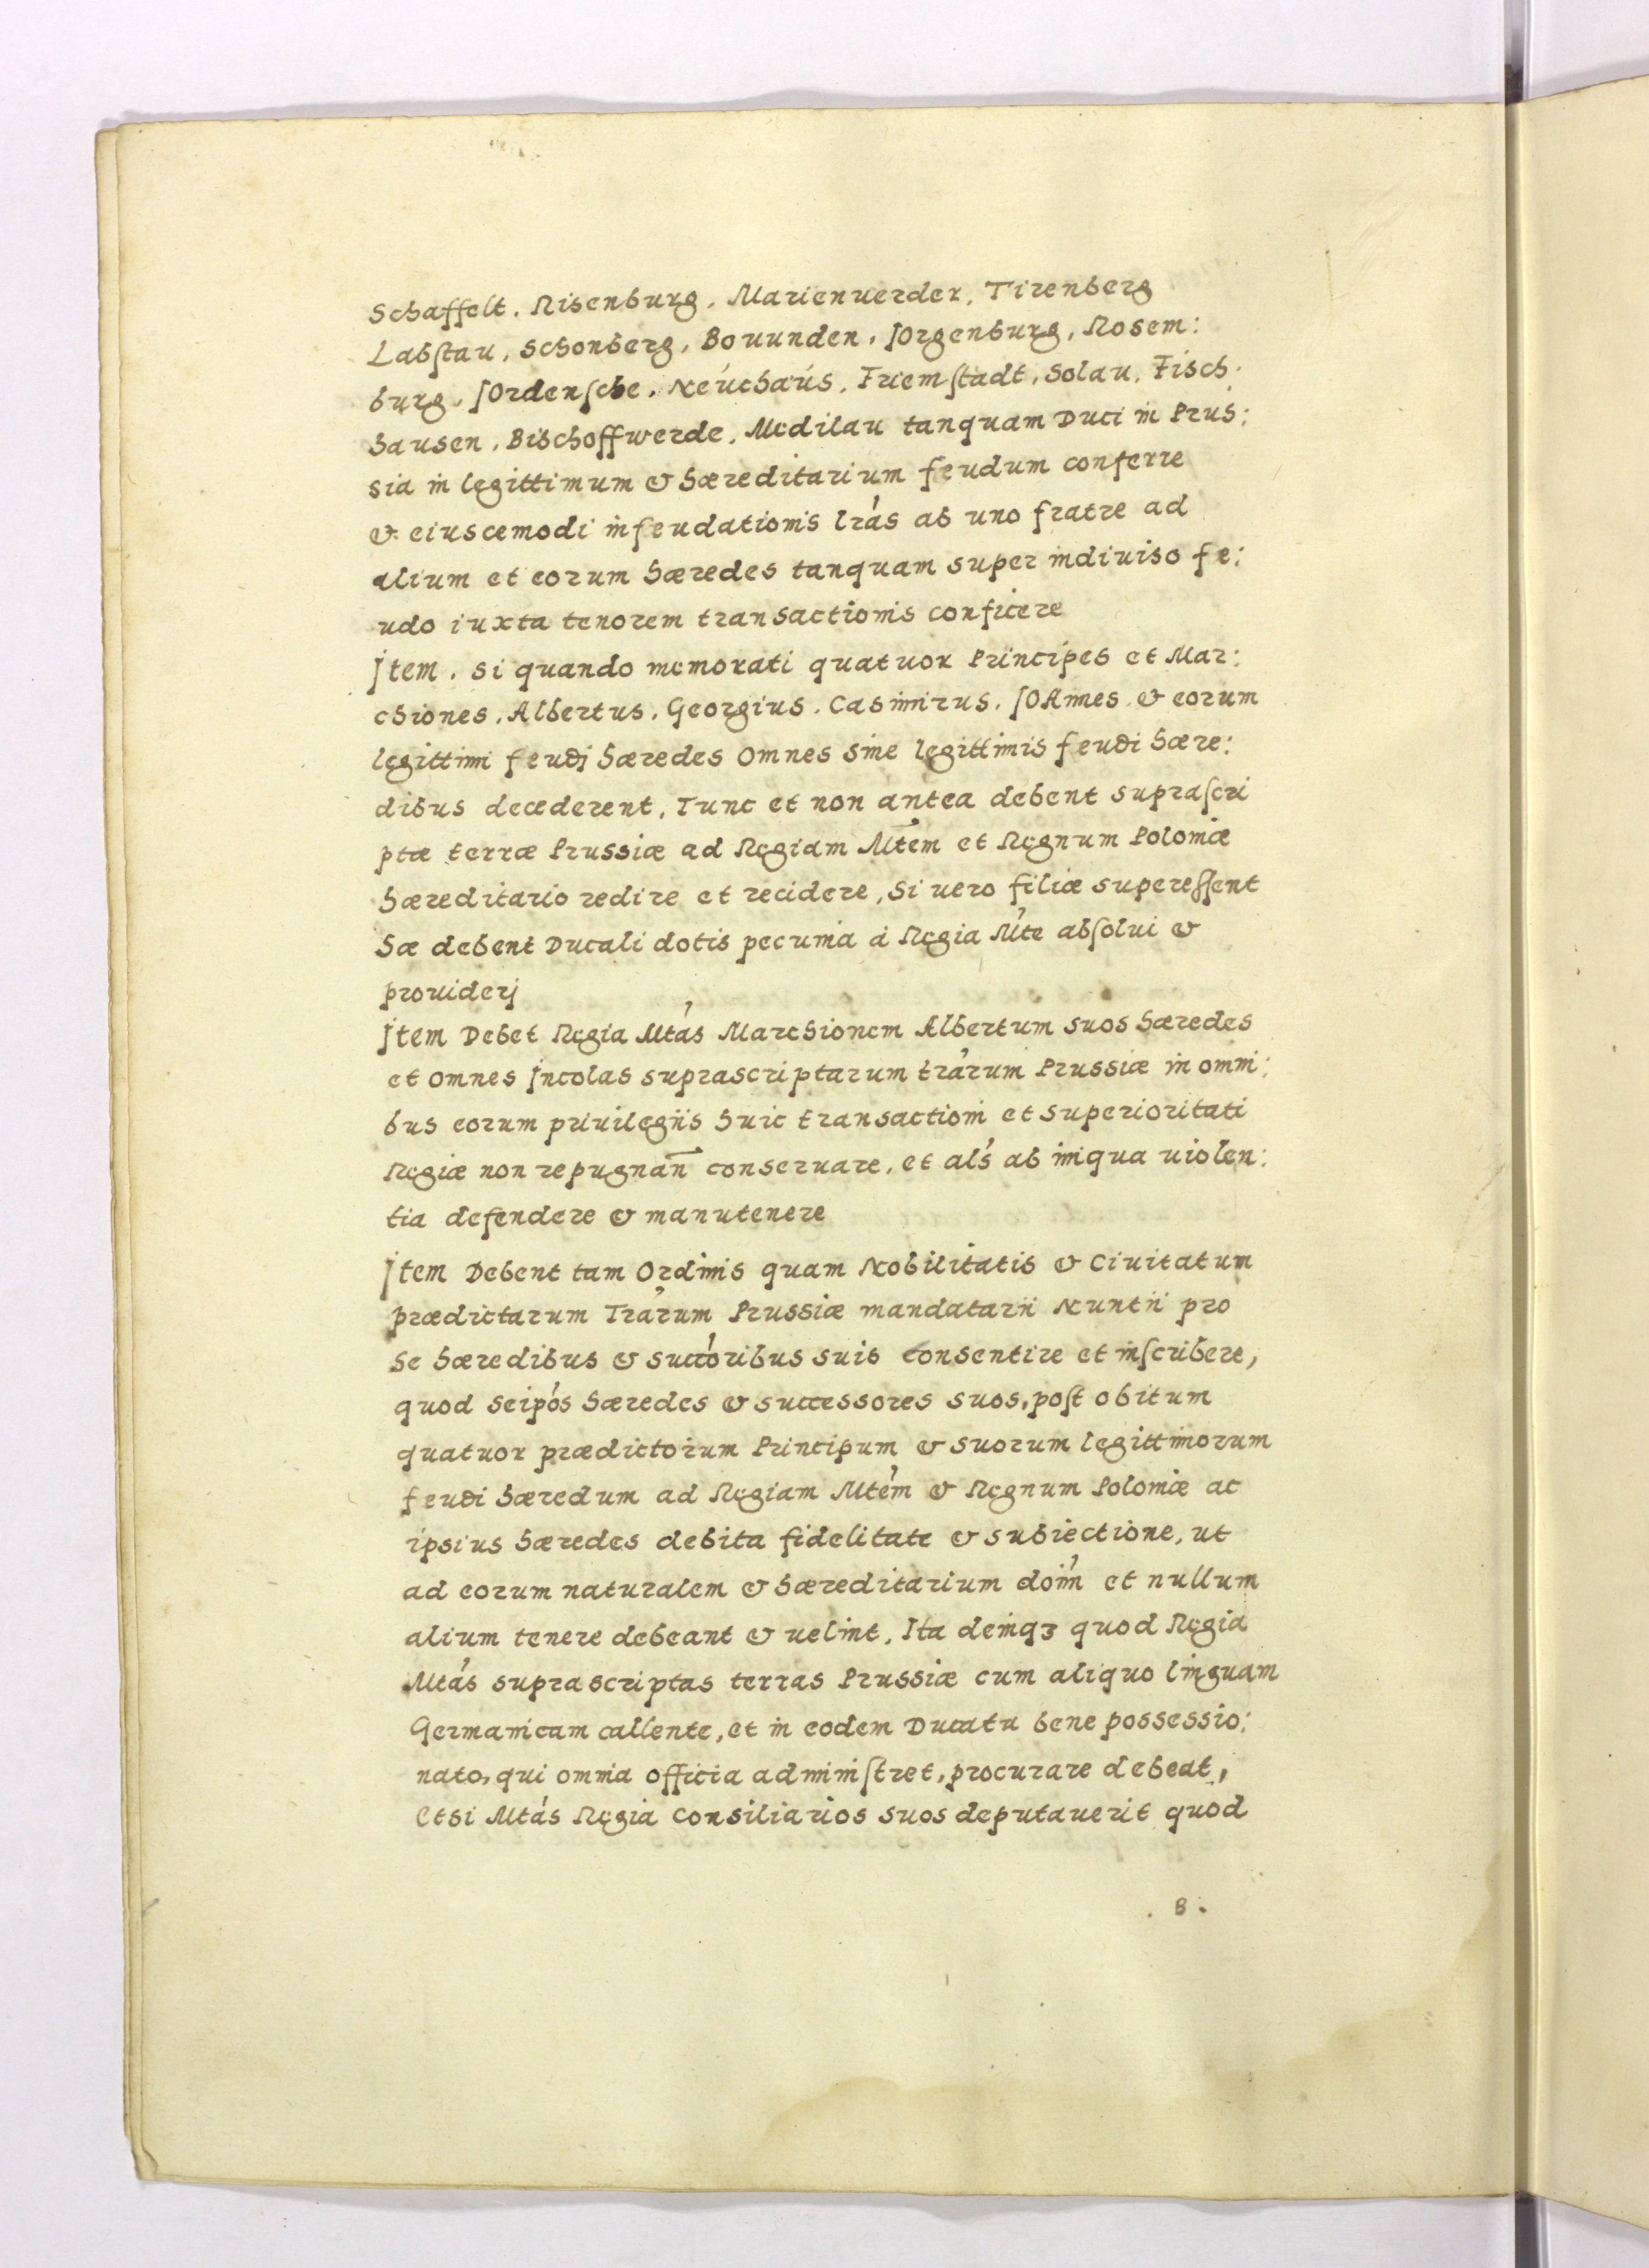 Schaffelt. Risenburg. Marienuerder, Tirenberg
Labstau, Schonberg, Bouunden, JOrgenburg, Rosem:
burg, JOrdensche. Neuchaus, Friemstadt, Solau, Fisch:
hausen, Bischoffwerde, Medilau tanquam Duci in Prus:
sia in legittimum & hæreditarium feudum conferre
& eiuscemodi infeudationis lrás ab uno fratre ad
alium et eorum hæredes tanquam super indiuiso fe:
udo iuxta tenorem transactionis conficere
Jtem. si quando memorati quatuor Principes et Mar:
chiones, Albertus, Georgius, Casimirus, JOAnnes & eorum
legittimi feudj hæredes Omnes sine legittimis feudi hære:
dibus decederent, Tunc et non antea debent suprascri
ptæ terræ Prussiæ ad Regiam Mtem et Regnum Poloniæ
hæreditario redire et recidere, Si uero filiæ superessent
hæ debent Ducali dotis pecunia á Regia Mte absolui &
prouiderj
Jtem Debet Regia Mtás Marchionem Albertum suos hæredes
et Omnes Jncolas suprascriptarum trárum Prussiæ in omni:
bus eorum priuilegiis huic transactioni et superioritati
Regiæ non repugnan̄ conseruare, et als ab iniqua uiolen:
tia defendere & manutenere
Jtem Debent tam Ordinis quam Nobilitatis & Ciuitatum
prædictarum Trárum Prussiæ mandatarii Nuntii pro
se hæredibus & succóribus suis consentire et inscribere,
quod seipós hæredes & successores suos, post obitum
quatuor prædictorum Principum & suorum legittimorum
feudi hæredum ad Regiam Mtém & Regnum Poloniæ ac
ipsius hæredes debita fidelitate & subiectione, ut
ad eorum naturalem & hæreditarium doim̄ et nullum
alium tenere debeant & uelint, Ita deniqꝫ quod Regia
Mtás suprascriptas terras Prussiæ cum aliquo linguam
Germanicam callente, et in eodem Ducatu bene possessio:
nato, qui omnia officia administret, procurare debeat,
Etsi Mtás Regia Consiliarios suos deputauerit quod
. B .